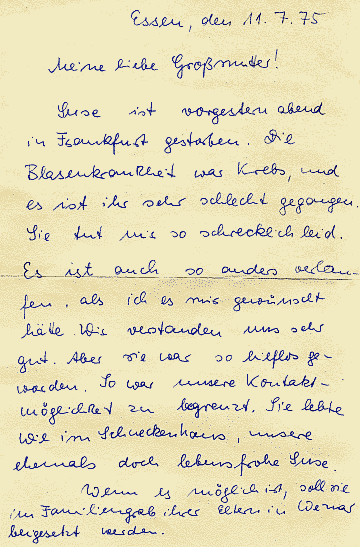 Essen, den 11.7.75
Meine liebe Großmutter!
Suse ist vorgestern abend
in Frankfurt gestorben. Die
Blasenkrankheit war Krebs, und
es ist ihr sehr schlecht gegangen.
Sie tut mir so schrecklich leid.
Es ist auch so anders verlau-
fen, als ich es mir gewünscht
hätte. Wir verstanden uns sehr
gut. Aber sie war so hilflos ge-
worden. So war unsere Kontakt-
möglichkeit zu begrenzt. Sie lebte
wie im Schneckenhaus, unsere
ehemals doch lebensfrohe Suse.
Wenn es möglich ist, soll sie
im Familiengrab ihrer Eltern in Weimar
beigesetzt werden.